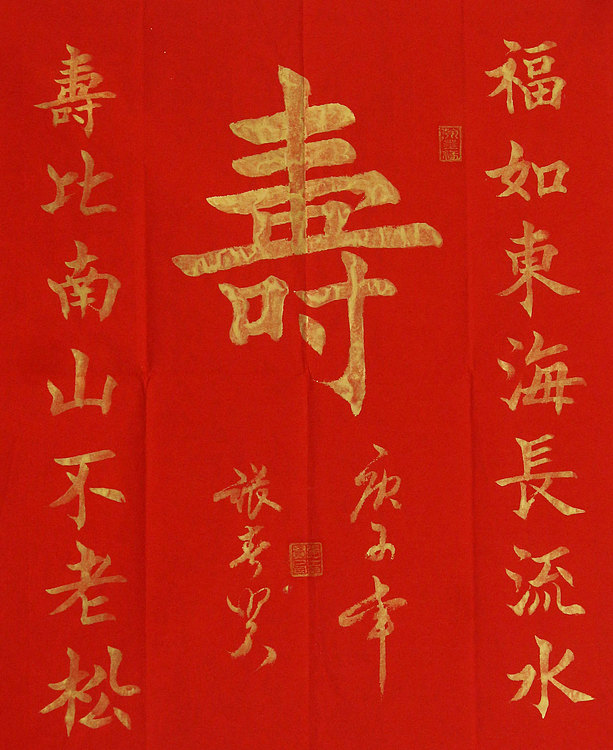 福如東海長流水
壽
庚子年
張春
壽比南山不老松